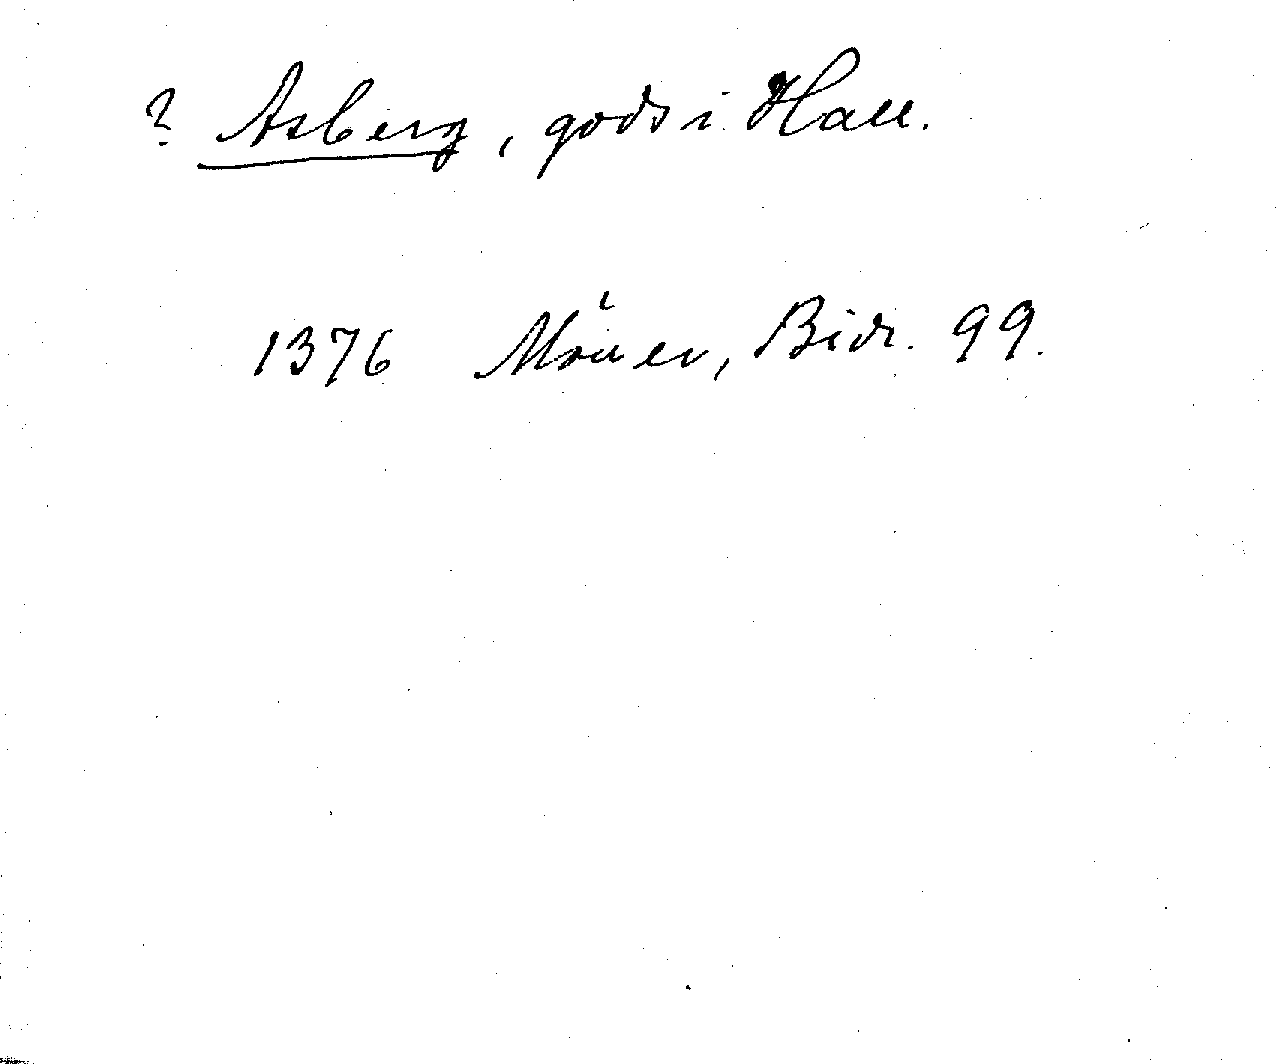 ? Asberg, gods i Hall.
1376 Mörner, Bidr. 99.